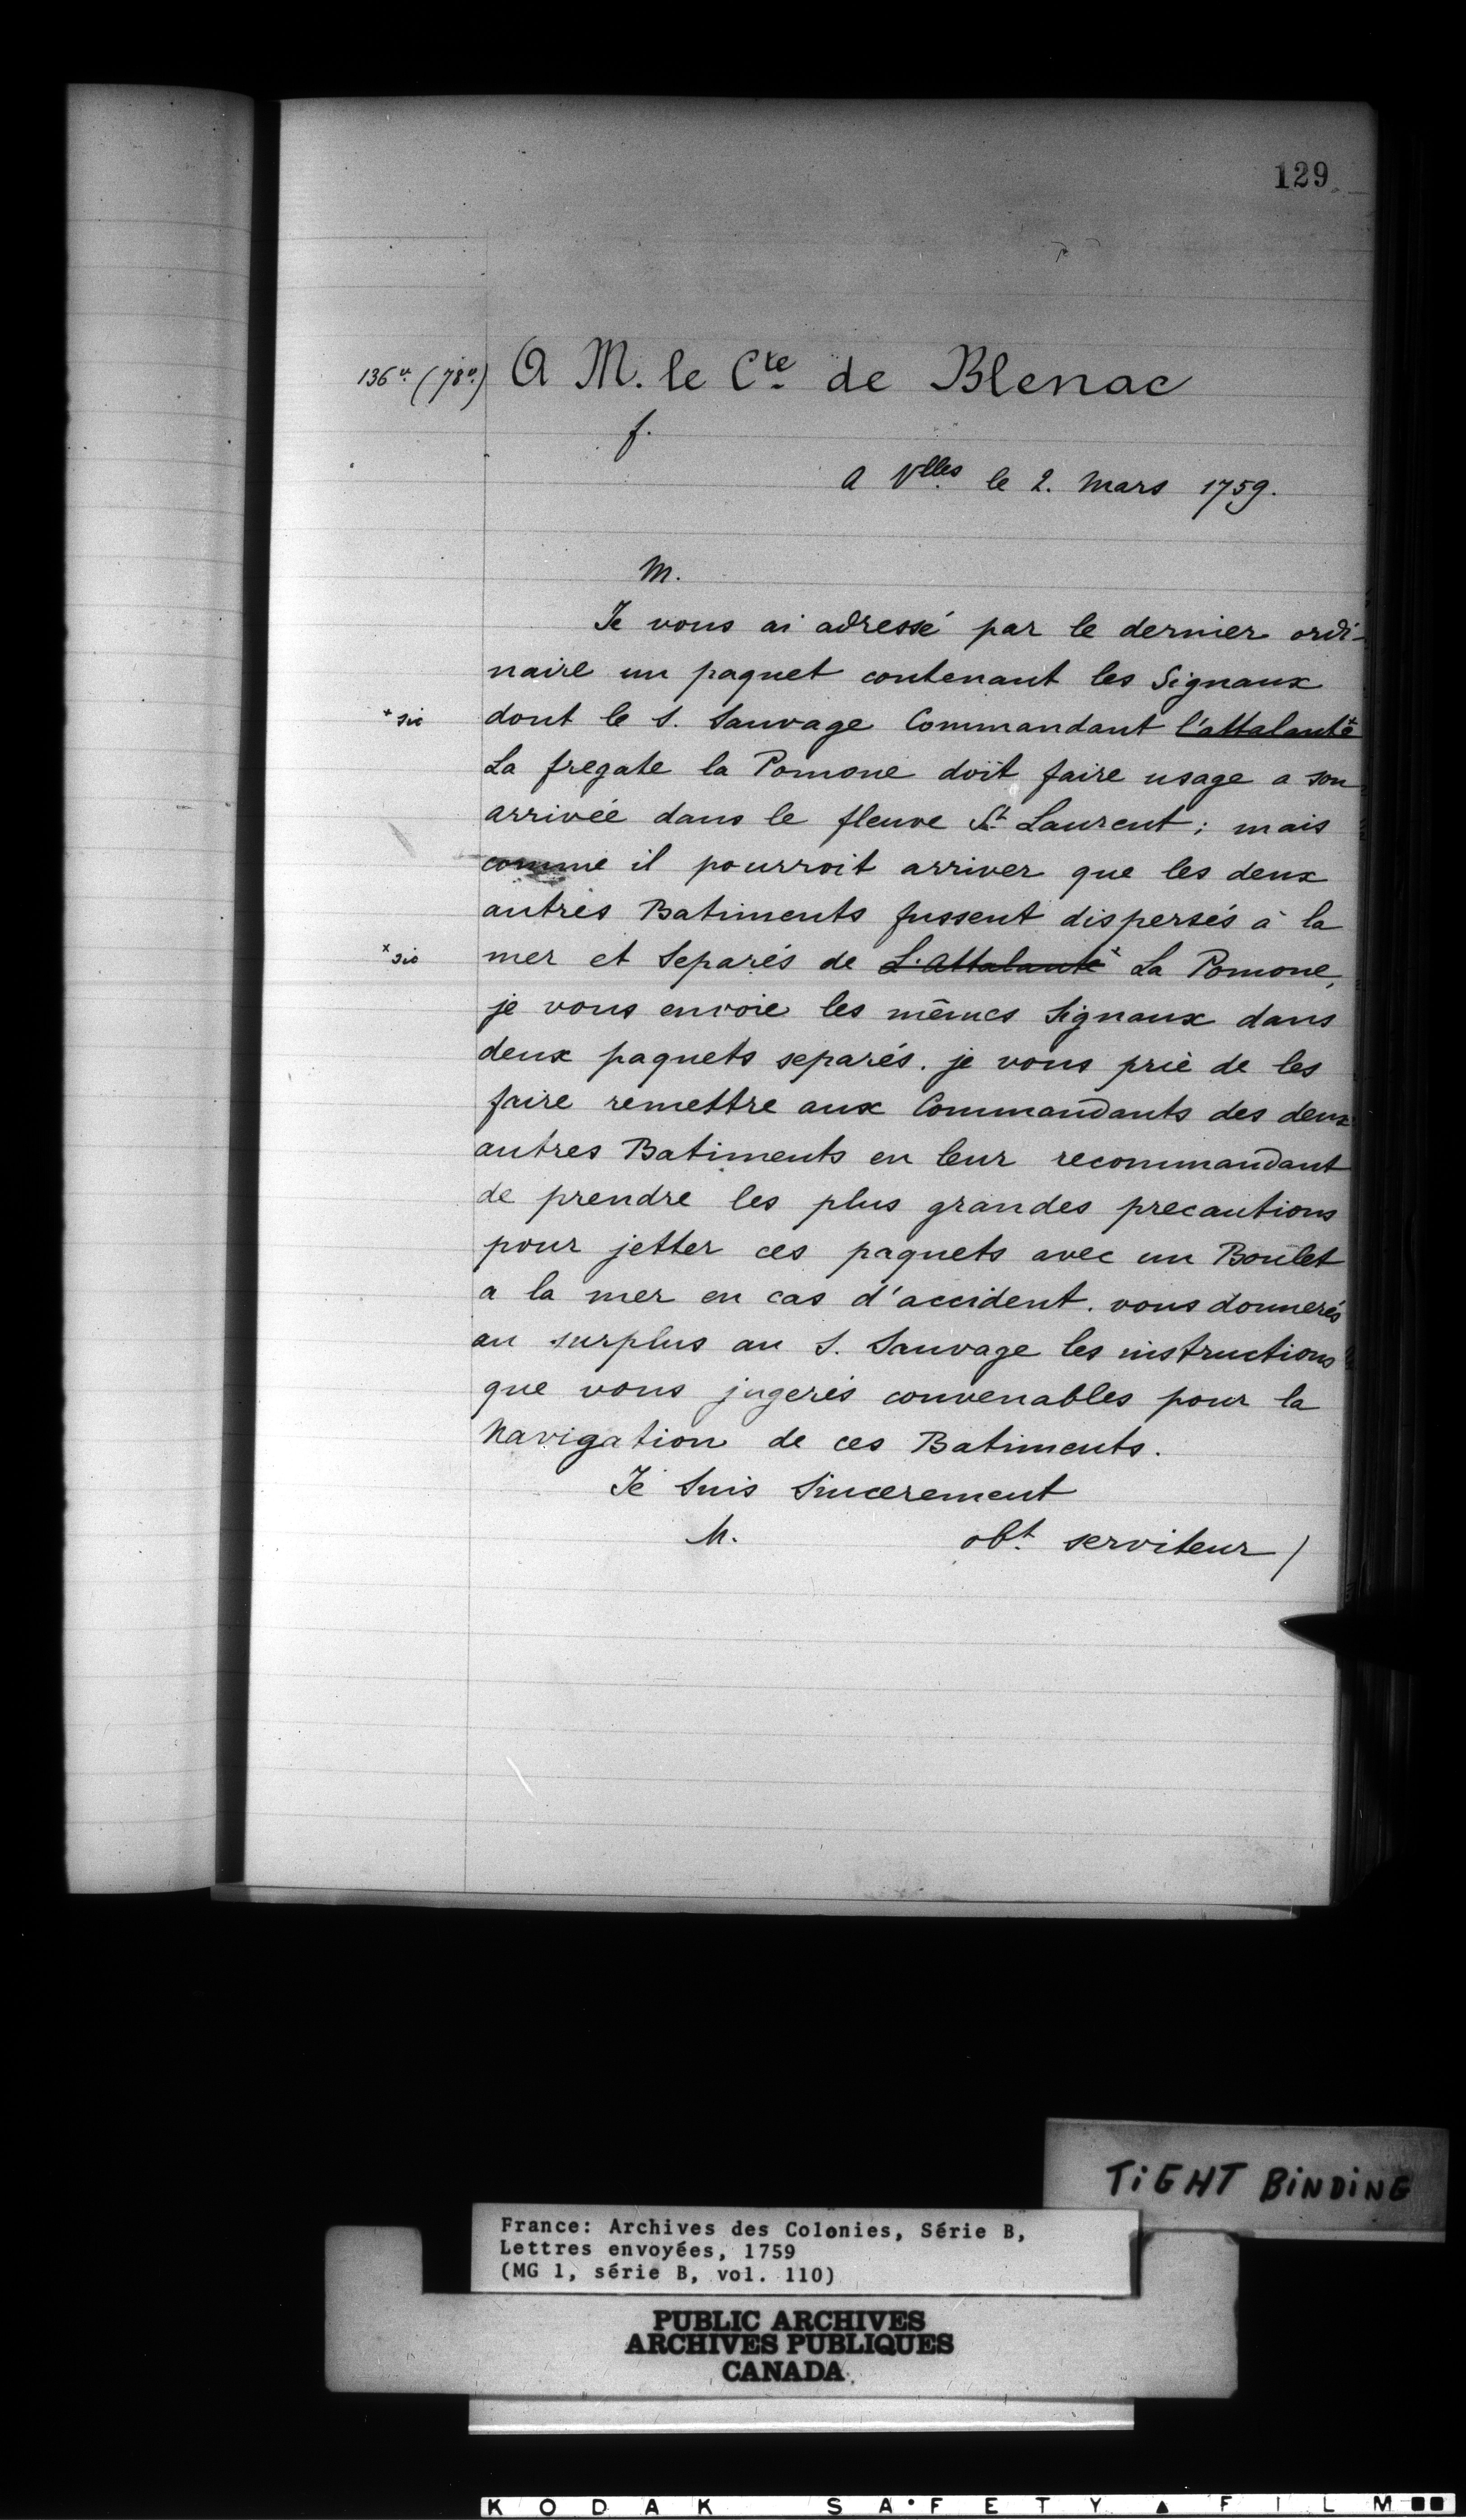 129
136v. (78v.) A M. le Cte de Blenac
f.
A Vlles le 2. Mars 1759.
M.
Je vous ai adressé par le dernier ordi-
naire un paquet contenant les Signaux
+ sic dont le S. Sauvage Commandant l'attalante+
La fregate la Pomone doit faire usage a son
arrivée dans le fleuve St Laurent; mais
comme il pourroit arriver que les deux
autres Batiments fussent dispersés à la
+ sic mer et Separés de L'Attalante+ La Pomone,
je vous envoie les mêmes Signaux dans
deux paquets separés. je vous prie de les
faire remettre aux Commandants des deux
autres Batiments en leur recommandant
de prendre les plus grandes precautions
pour jetter ces paquets avec un Boulet
a la mer en cas d'accident. vous donnerés
au surplus au S. Sauvage les instructions
que vous jugerés convenables pour la
Navigation de ces Batiments.
Je Suis Sincerement
M. obt. serviteur /
TIGHT BINDING
France: Archives des Colonies, Série B,
Lettres envoyées, 1759
(MG 1, série B, vol. 110)
PUBLIC ARCHIVES
ARCHIVES PUBLIQUES
CANADA
KODAK SAFETY FILM